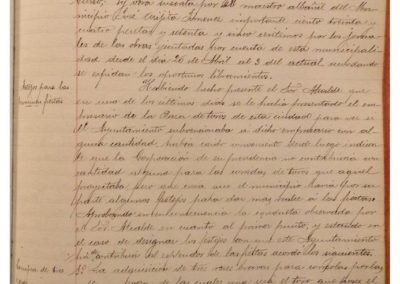 maestro albañil del Mu-
nicipio José Crispín Jimenez importante ciento treinta y
cuatro pesetas y setenta y cinco centimos por los jorna-
les de las obras ejecutadas por cuenta de esta municipali-
dad desde el dia 26 de Abril al 3 del actual acordando
se expidan los oportunos libramientos.
Festejos para las
Habiendo hecho presente el Sor. Alcalde que
en uno de los ultimos dias se le habia presentado el em-
presario de la Plaza de toros de esta ciudad para ver si
el Ayuntamiento subvencionaba a dicho empresario con al-
guna cantidad, habia desde luego indica-
que la Corporación de su presidencia no contribuiria con
cantidad alguna para las corridas de toros que aquel
proyectaba pero que creia que el municipio haria por su
parte algunos festejos para dar mas realce a las fiestas.
Aprobando la conducta observada por
el Sor. Alcalde en cuanto al primer punto, y estando en
el caso de designar los festejos con que este Ayuntamiento
contribuir al esplendor de las fiestas acordó los siguientes.
Compra de tres
La adquisición de tres reses bravas para
de las cuales una sea el toro que